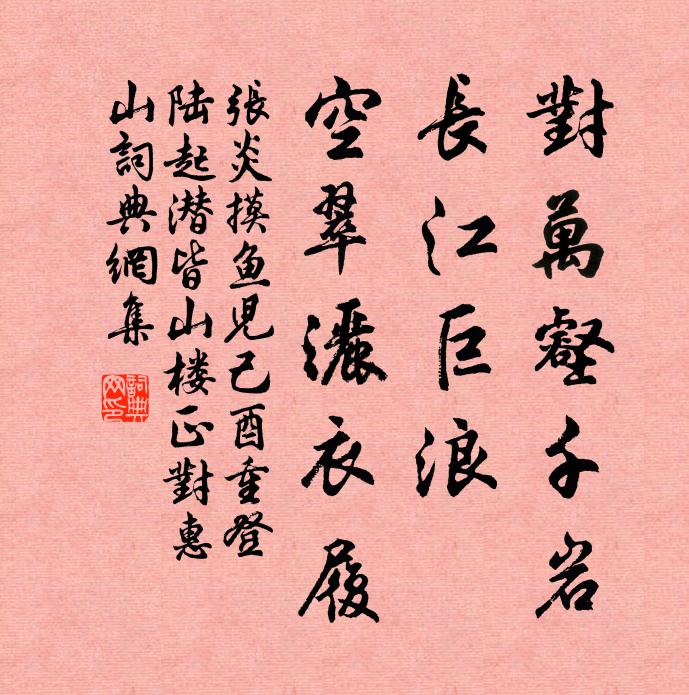 對萬壑千岩
長江巨浪
空翠灑衣履
張炎摸魚兒己酉重登
陆起潜皆山楼正對惠
山詞典網集
詞典网印